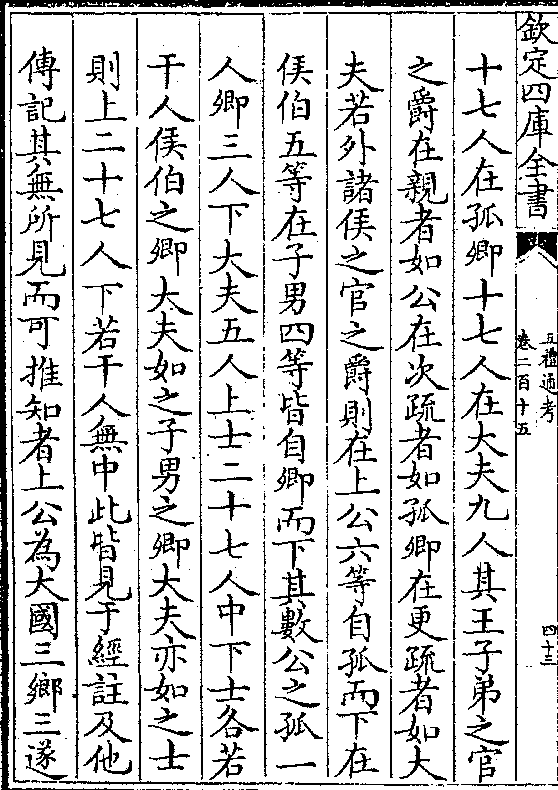 欽定四庫全書
五禮通考
卷二百十五
四十三
十七人在孤卿十七人在大夫九人其王子弟之官
之爵在親者如公在次疏者如孤卿在更疏者如大
夫若外諸侯之官之爵則在上公六等自孤而下在
侯伯五等在子男四等皆自卿而下其數公之孤一
人卿三人下大夫五人上士二十七人中下士各若
干人侯伯之卿大夫如之子男之卿大夫亦如之士
則上二十七人下若干人無中此皆見于經註及他
傳記其無所見而可推知者上公為大國三鄉三遂